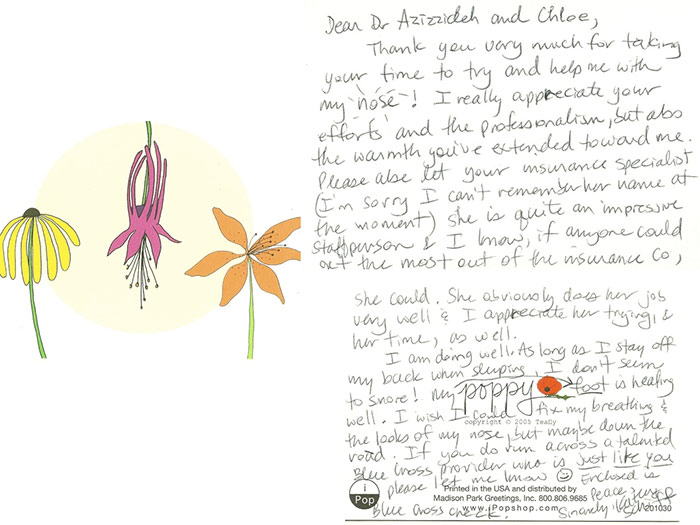 Dear Dr Azizzideh and Chloe,
Thank you very much for taking
your time to try and help me with
my nose! I really appreciate your
efforts and the professionalism, but also
the warmth you've extended toward me.
Please also let your insurance specialist
(I'm sorry I can't remember her name at
the moment) she is quite an impressive
staffperson & I know, if anyone could
get the most out of the insurance Co,
she could. She obviously does her job
very well & I appreciate her trying, &
her time, as well.
I am doing well. As long as I stay off
my back when sleeping, I don't seem
to snore! My foot is healing
poppy
well. I wish I could fix my breathing &
copyright © 2005 Teady
the looks of my nose, but maybe down the
road. If you do run across a talented
Blue Cross provider who is just like you
please let me know Enclosed is
i Pop
Printed in the USA and distributed by
Madison Park Greetings, Inc. 800.806.9685
www.iPopshop.com
201030
Blue Cross check.
Peace
Sincerely,